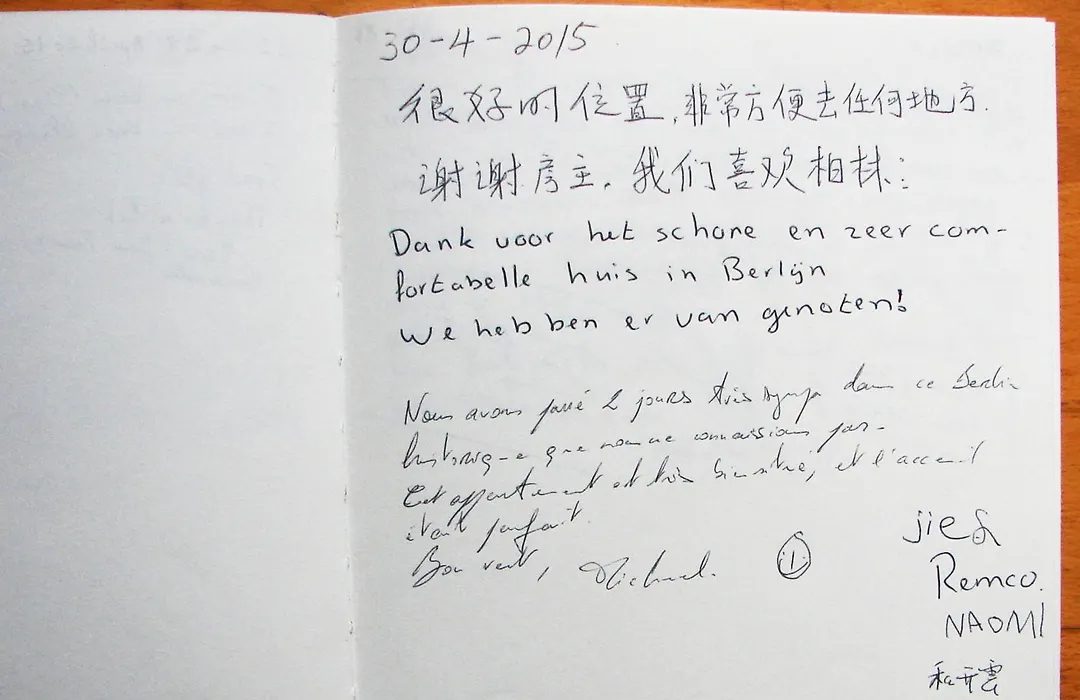 30-4-2015
很好的位置,非常方便去任何地方.
谢谢房主.我们喜欢柏林:
Dank voor het schone en zeer com-
fortabelle huis in Berlijn
We hebben er van genoten!
Nous avons passé 2 jours très sympa dans ce Berlin
historique que nous ne connaissions pas.
Cet appartement est très bien situé, et l'accueil
était parfait.
Bon vent, Michael.
jie &
Remco.
NAOMI